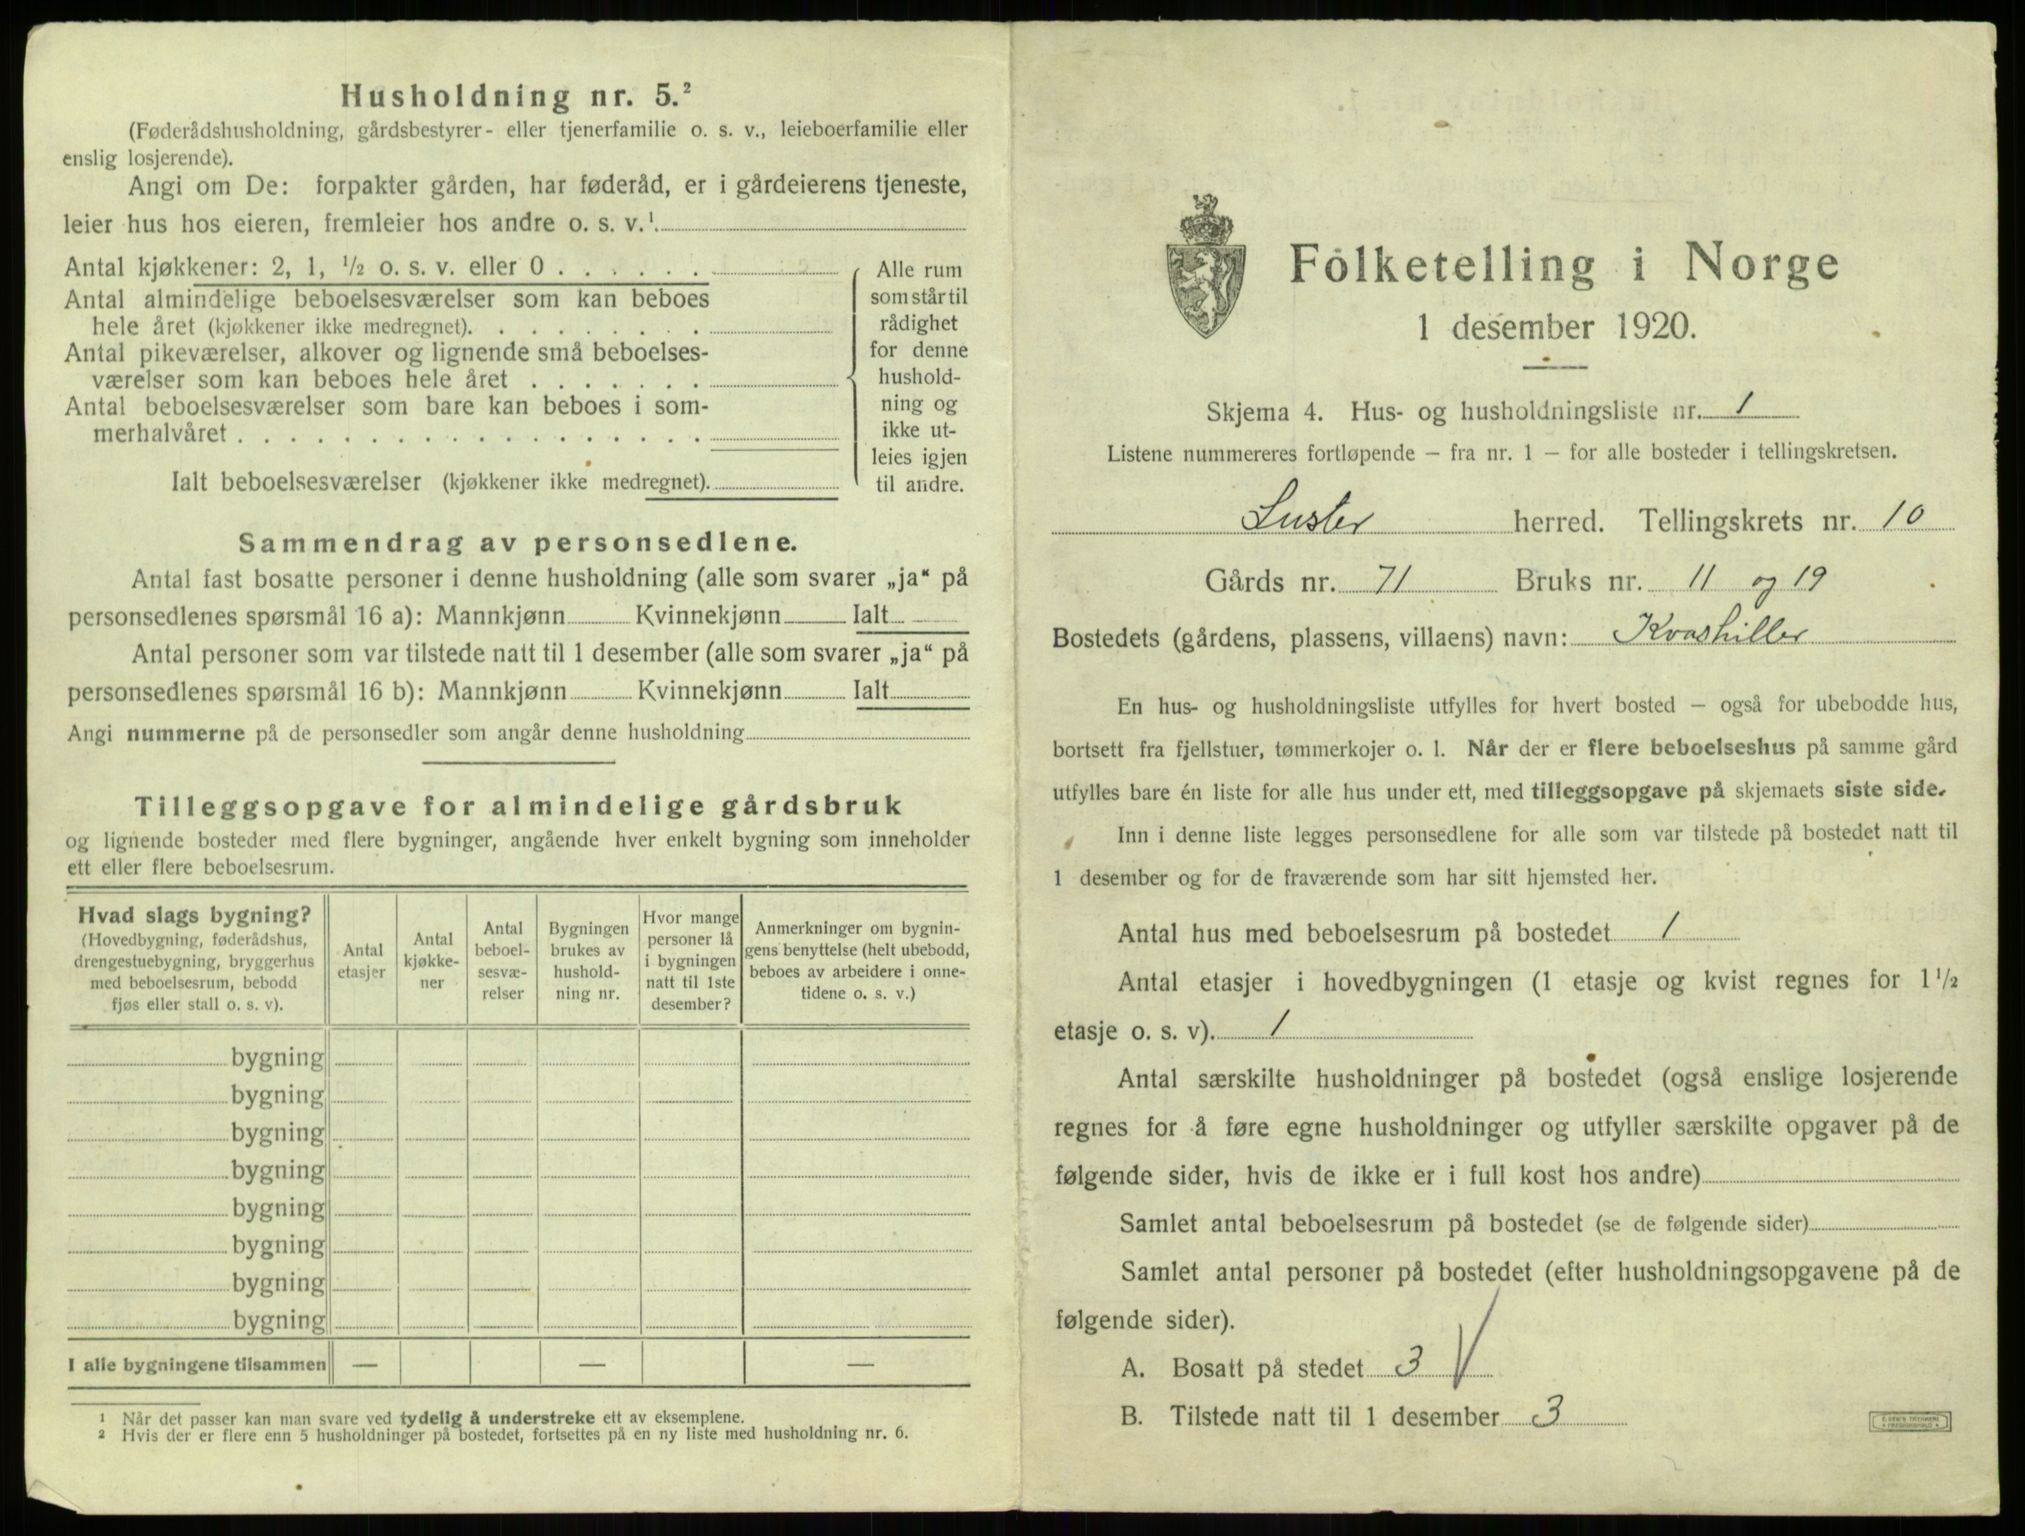 Husholdning nr. 5.²
(Føderådshusholdning, gårdsbestyrer- eller tjenerfamilie o. s. v., leieboerfamilie eller
enslig losjerende).
Angi om De: forpakter gården, har føderåd, er i gårdeierens tjeneste,
leier hus hos eieren, fremleier hos andre o. s. v.¹
Antal kjøkkener: 2, 1, ½ o. s. v. eller 0 . . . . . .
Antal almindelige beboelsesværelser som kan beboes
hele året (kjøkkener ikke medregnet). . . . . . . . .
Antal pikeværelser, alkover og lignende små beboelses-
værelser som kan beboes hele året . . . . . . .
Antal beboelsesværelser som bare kan beboes i som-
merhalvåret . . . . . . . . . . . . . . . . . .
Ialt beboelsesværelser (kjøkkener ikke medregnet).
Alle rum
som står til
rådighet
for denne
hushold-
ning og
ikke ut-
leies igjen
til andre.
Sammendrag av personsedlene.
Antal fast bosatte personer i denne husholdning (alle som svarer „ja“ på
personsedlenes spørsmål 16 a): Mannkjønn Kvinnekjønn Ialt
Antal personer som var tilstede natt til 1 desember (alle som svarer „ja“ på
personsedlenes spørsmål 16 b): Mannkjønn Kvinnekjønn Ialt
Angi nummerne på de personsedler som angår denne husholdning
Tilleggsopgave for almindelige gårdsbruk
og lignende bosteder med flere bygninger, angående hver enkelt bygning som inneholder
ett eller flere beboelsesrum.
Hvad slags bygning?
(Hovedbygning, føderådshus,
drengestuebygning, bryggerhus
med beboelsesrum, bebodd
fjøs eller stall o. s. v).
Antal
etasjer
Antal
kjøkke-
ner
Antal
beboel-
sesvæ-
relser
Bygningen
brukes av
hushold-
ning nr.
Hvor mange
personer lå
i bygningen
natt til 1ste
desember?
Anmerkninger om bygnin-
gens benyttelse (helt ubebodd,
beboes av arbeidere i onne-
tidene o. s. v.)
bygning
bygning
bygning
bygning
bygning
bygning
bygning
bygning
I alle bygningene tilsammen — — —
¹ Når det passer kan man svare ved tydelig å understreke ett av eksemplene.
² Hvis der er flere enn 5 husholdninger på bostedet, fortsettes på en ny liste med husholdning nr. 6.
Folketelling i Norge
1 desember 1920.
Skjema 4. Hus- og husholdningsliste nr. 1
Listene nummereres fortløpende – fra nr. 1 – for alle bosteder i tellingskretsen.
Luster herred. Tellingskrets nr. 10
Gårds nr. 71 Bruks nr. 11 og 19
Bostedets (gårdens, plassens, villaens) navn: Kvashiller
En hus- og husholdningsliste utfylles for hvert bosted – også for ubebodde hus,
bortsett fra fjellstuer, tømmerkojer o. l. Når der er flere beboelseshus på samme gård
utfylles bare én liste for alle hus under ett, med tilleggsopgave på skjemaets siste side.
Inn i denne liste legges personsedlene for alle som var tilstede på bostedet natt til
1 desember og for de fraværende som har sitt hjemsted her.
Antal hus med beboelsesrum på bostedet 1
Antal etasjer i hovedbygningen (1 etasje og kvist regnes for 1 ½
etasje o. s. v). 1
Antal særskilte husholdninger på bostedet (også enslige losjerende
regnes for å føre egne husholdninger og utfyller særskilte opgaver på de
følgende sider, hvis de ikke er i full kost hos andre)
Samlet antal beboelsesrum på bostedet (se de følgende sider)
Samlet antal personer på bostedet (efter husholdningsopgavene på de
følgende sider).
A. Bosatt på stedet 3
B. Tilstede natt til 1 desember 3